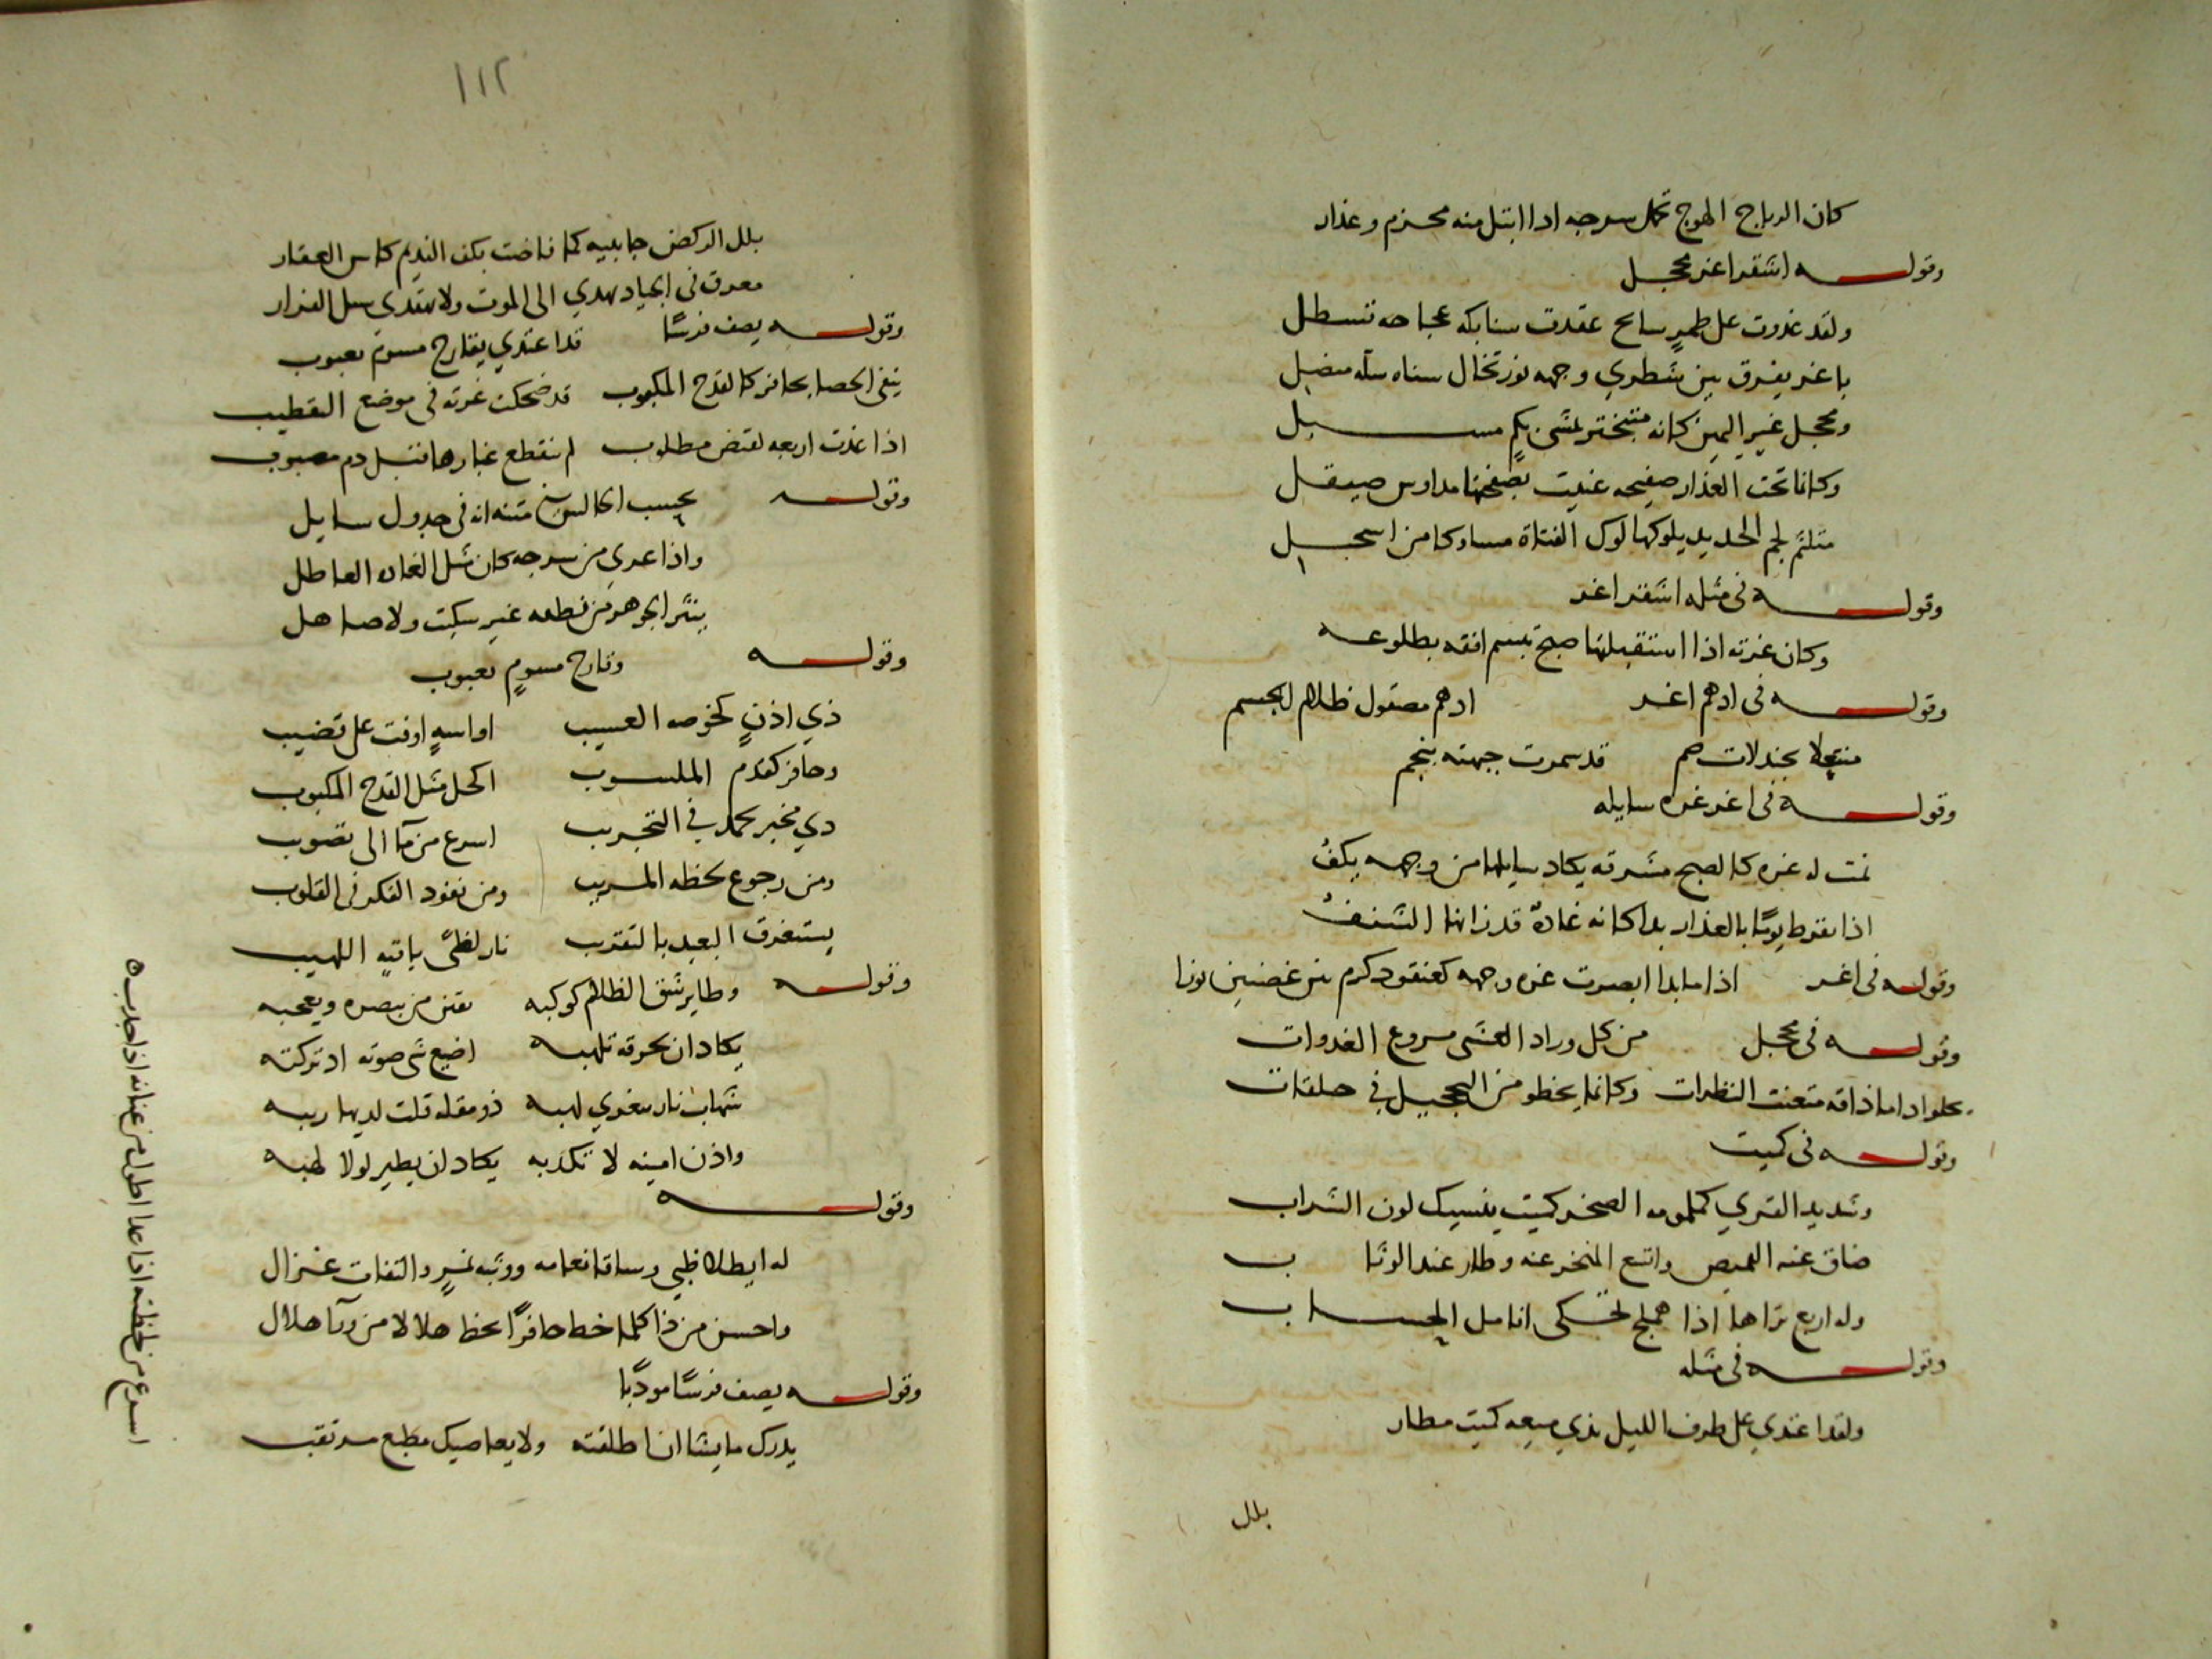 كان الرياح الهوج تحمل سرجه اذا ابتل منه محزم وعذار
وقوله اشقر اغر محجل
ولقد غدوت على طمرٍ سابح عقدت سنابكه عجاجه تسطل
باغر يفرق بين شطري وجهه نور تخال سناه سله منصل
ومحجل غير اليمين كانه متبختر يمشى بكم مسبل
وكانما تحت العذار صفيحه عنيت بصفحتها مداوس صيقل
متلثم لجم الحديد يلوكها لوك الفتاة مساوكا من اسحل
وقوله فى مثله اشقر اغر
وكان غرته اذا استقبلتها صبح تبسم افقه بطلوعه
وقوله فى ادهم اغر ادهم مصقول ظلام الجسم
منتعلا بجندلات صم قد سمرت جبهته بنجم
وقوله فى اغر غره سايله
تمت له غره كالصبح مشرقه يكاد سايلها من وجهه يكفُ
اذا تقرط يومًا بالعذار بدا كانه غادةٌ قد زانها الشنفُ
وقوله فى اغر اذا ما بدا ابصرت غره وجهه كعنقود كرم بين غصنين نورا
وقوله فى محجل من كل وراد العشى مروع الغدوات
يحلوا اذا ما ذاقه متعنت النظرات وكانما يخطو من التحجيل فى حلقات
وقوله فى كميت
وشديد القرى كملمومه الصخر كميت ينسيك لون الشراب
ضاق عنه القميص واتسع المنخر عنه وطار عند الوثاب
وله اربع تراها اذا هملج تحكى انامل الحساب
وقوله فى مثله
ولقد اغتدي على طرف الليل بذي ميعه كميت مطار
بلل
١١٢
بلل الركض جانبيه كما فاضت بكف النديم كاس العقار
معرق فى الجياد يهدي الى الموت ولا يهتدى سبل الفرار
وقوله يصف فرسًا قد اغتدي بقارح مسوم يعبوب
ينفى الحصا بحافر كالقدح المكبوب قد ضحكت غرته فى موضع التقطيب
اذا غدت اربعه لقنص مطلوب لم ينقطع غبارها قبل دم مصبوب
وقوله يحسب الجالس متنه انه فى جدول سايل
واذا عرى من سرجه كان مثل الغاده العاطل
ينثر الجوهر من نطقه غير سكيت ولا صاهل
وقوله وقارح مسومٍ يعبوب
ذي اذنٍ كخوصه العسيب او اسهٍ اوفت على قضيب
وحافر كقدم الملسوب اكحل مثل القدح المكبوب
ذي مخبر يحمد في التجريب اسرع من ما الى تصويب
ومن رجوع لحظه المريب ومن نفوذ الفكر فى القلوب
يستغرق البعيد بالتقريب نار لظًى باقيه اللهيب
وقوله وطاير شق الظلام كوكبه يفتن من يبصره ويعجبه
يكاد ان يحرقه تلهبه اضيع شى صوته اذ تركبه
شهاب نار يغوي لهبه ذو مقله قلت لديها ريبه
واذن امينه لا تكذبه يكاد ان يطير لولا لهبه
وقوله
له ايطلا ظبي وساقا نعامه ووثبه نمرٍ والتفات غزال
واحسن من ذا كلما خط حافرًا بخط هلالا من ورآ هلال
وقوله يصف فرسًا مودًبا
يدرك ما يشا ان اطلقته ولا يعاصيك مطيع مرتقب
اسرع من لحظته اذا عدا اطول من عنانه اذا جذب ه